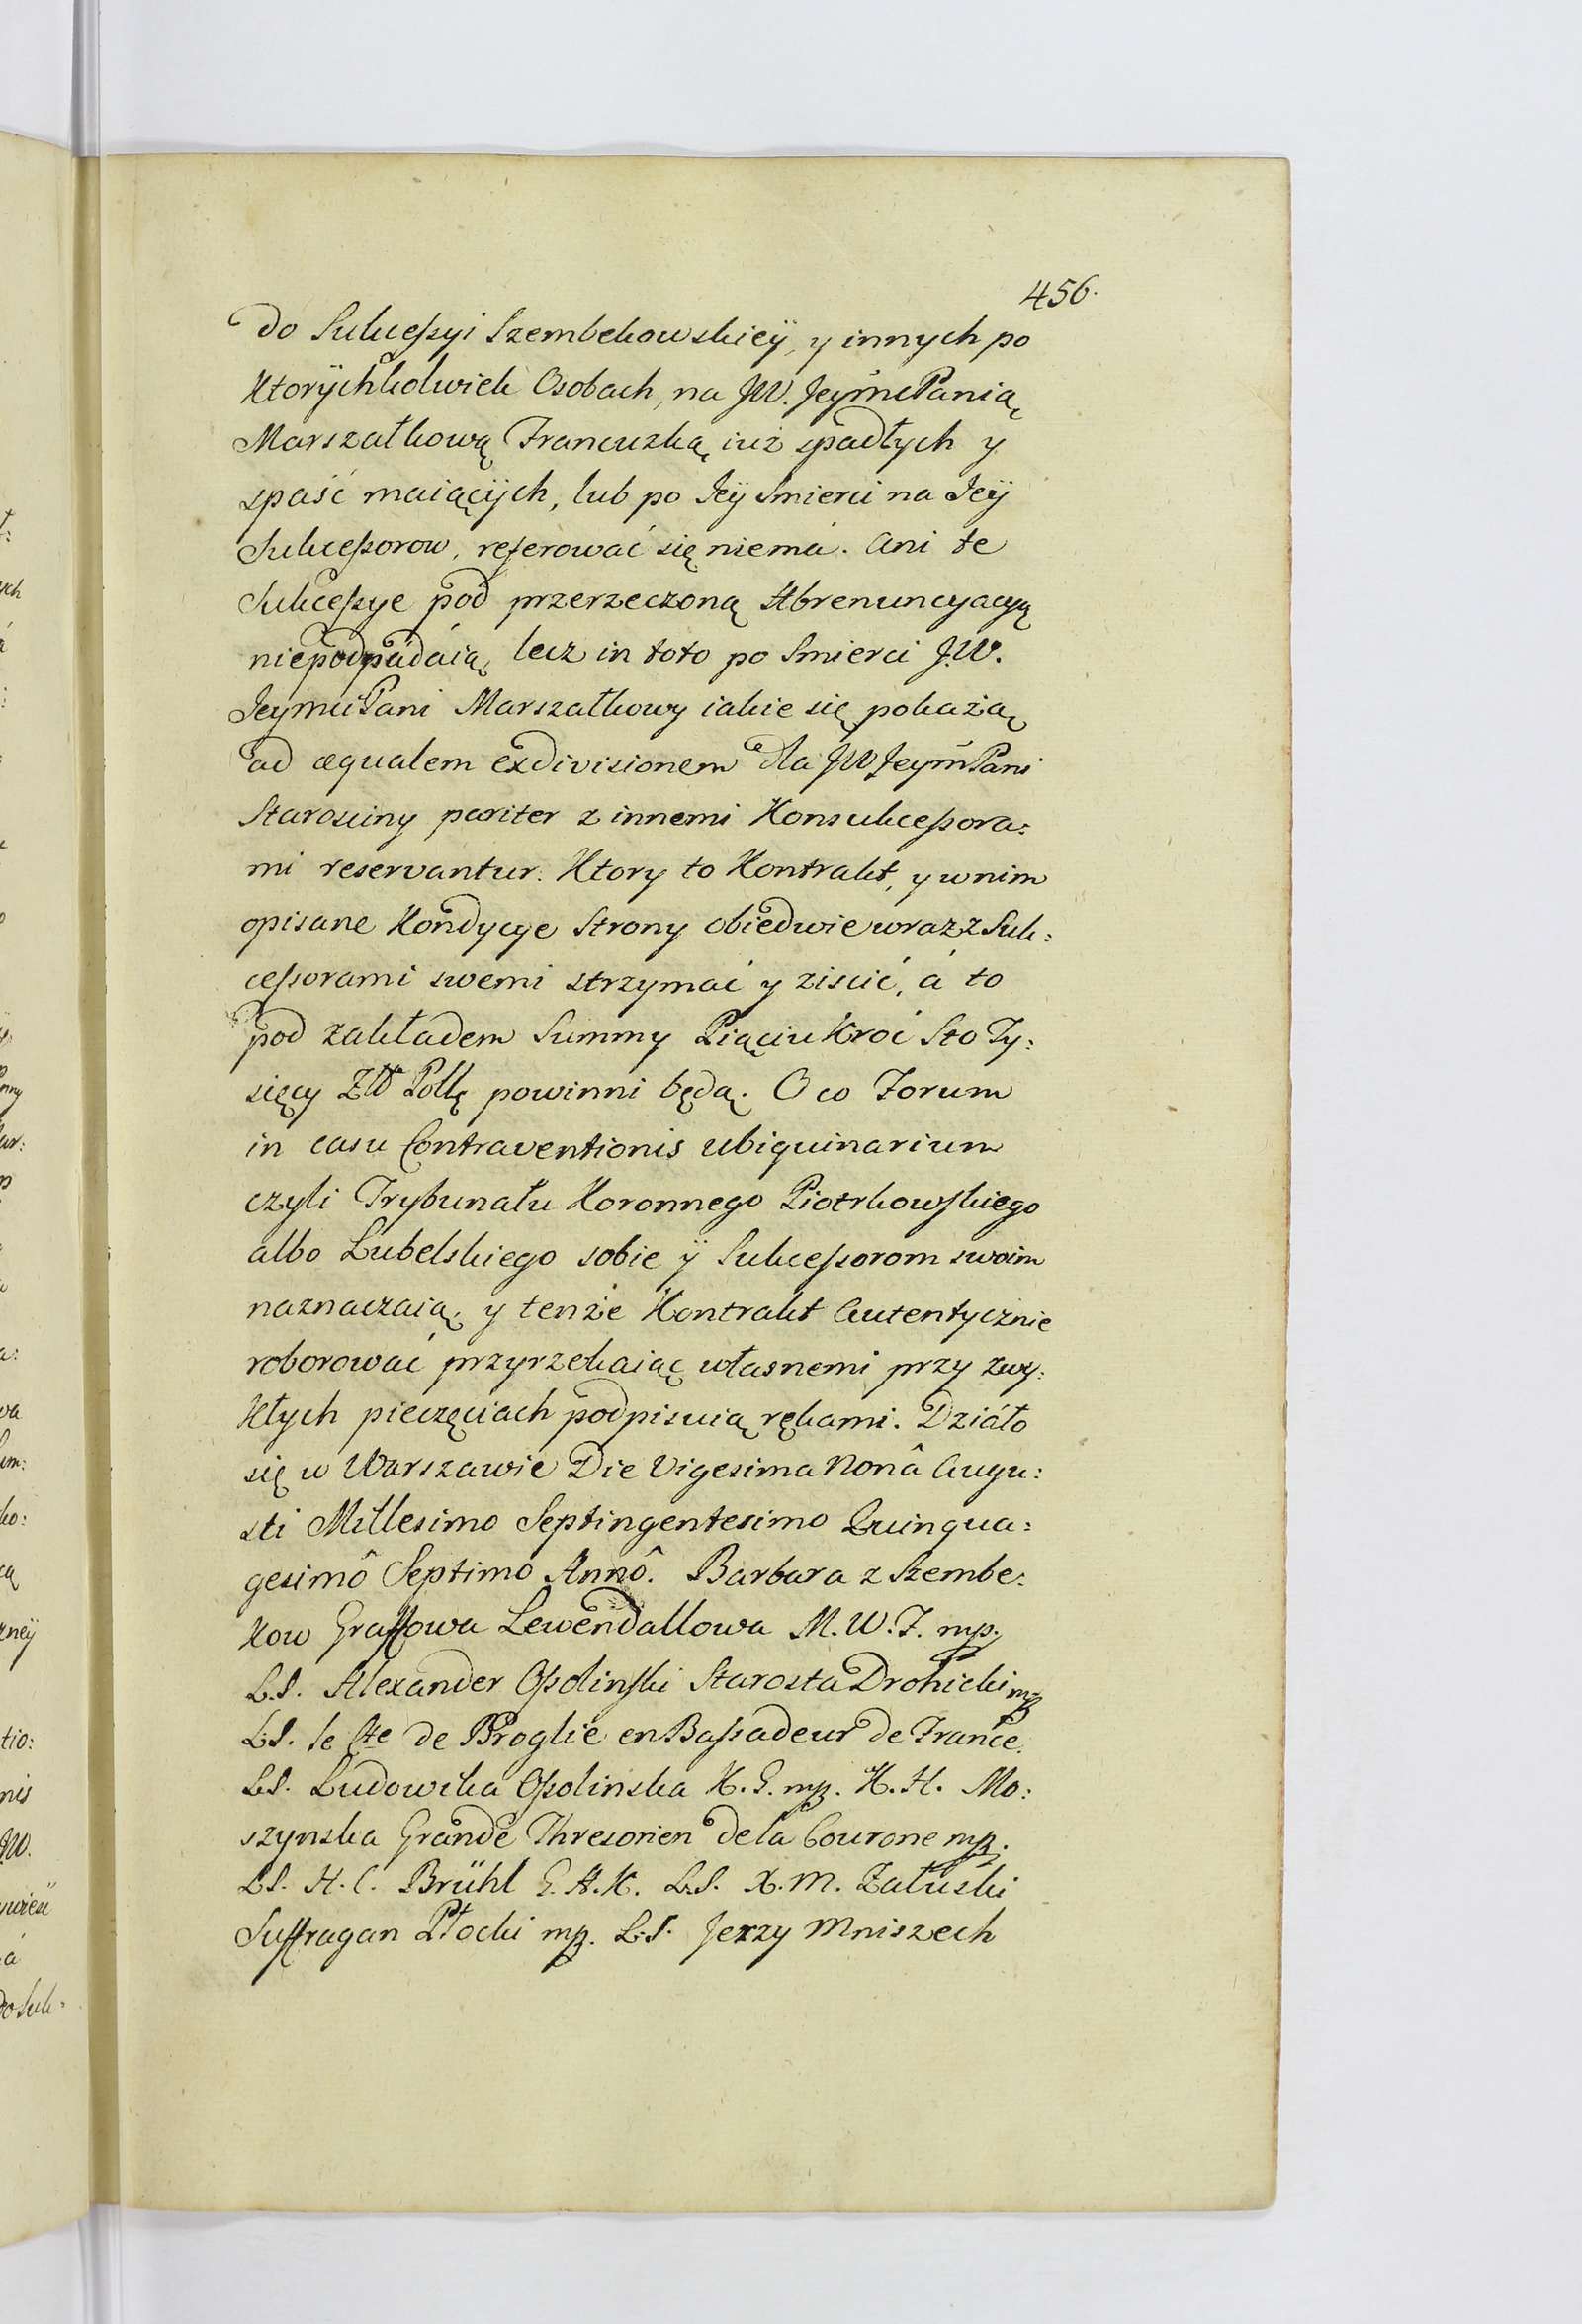 456.
do Sukceſsyi Szembekowskieÿ, y innych po
Ktorÿchkolwiek Osobach, na JW. JeÿmćPanią
Marszałkową Francuzką iuż spadłych y
spaść maiącÿch, lub po Jeÿ Smierci na Jeÿ
Sukceſsorow, referować się niemá. Ani te
Sukceſsye pod przerzeczoną Abrenuncyacyą
niepodpadáią, lecz in toto po Smierci J.W.
JeymciPani Marszałkowy iakie się pokażą
ad æqualem exdivisionem dla JW JeymPani
Starosciny pariter z innemi Konsukceſsora:
mi reservantur. Ktory to Kontrakt, y wnim
opisane Kondycye Strony obiedwie wraz z Suk:
ceſsorami swemi strzymać y ziscić, á to
pod zakładem Summy Piąciu Kroć Sto Ty:
sięcy Złł Pollę powinni będą. O co Forum
in casu Contraventionis ubiquinarium
czyli Trybunału Koronnego Piotrkowſkiego
albo Lubelskiego sobie ÿ Sukceſsorom swoim
naznaczaią, y tenże Kontrakt Autentycznie
roborować przyrzekaiąc własnemi przy zwy:
Kłych pieczęciach podpisuią rękami. Działo
się w Warszawie Die Vigesima Nonâ Augu:
sti Millesimo Septingentesimo Quinqua:
gesimô Septimô Annô. Barbara z Szembe:
Kow Graffowa Lewendallowa M.W.F. mp.
L.S. Alexander Oſsolinſki Starosta Drohicki mp
L.S. le Cte de Broglie en Baſsadeur de France.
L.S. Ludowika Oſsolinska K.G. mp. K.H. Mo:
szynska Grande Thresorien de la Courone mp.
L.S. H.C. Brühl G.A.K. L.S. X.M. Załuski
Suffragan Płocki mp. L.S. Jerzy Mniszech